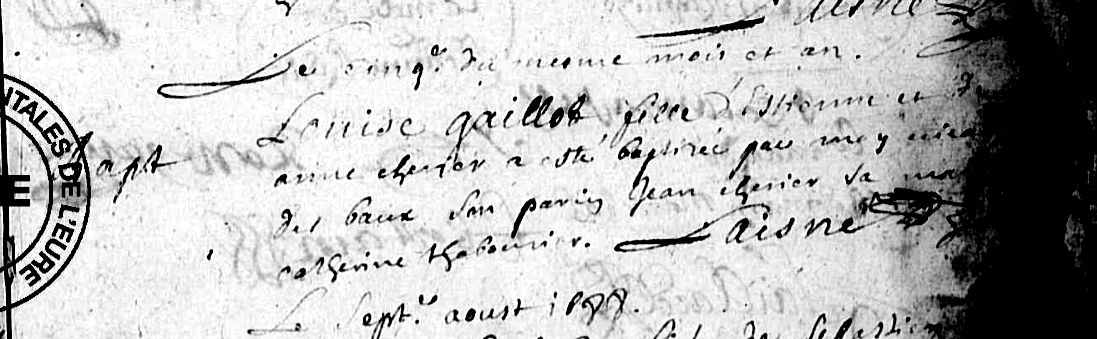 Laisne
Le cinq.e du mesme mois et an.
Louise gaillot fille d'Estienne et de
bapt
anne cherier a esté baptizée par moy vicaire
des baux son parin Jean cherier sa ma
catherine thabourier. Laisne
Le sept.e aoust 1688.
de Sebastien
TALES DE L'EURE
E